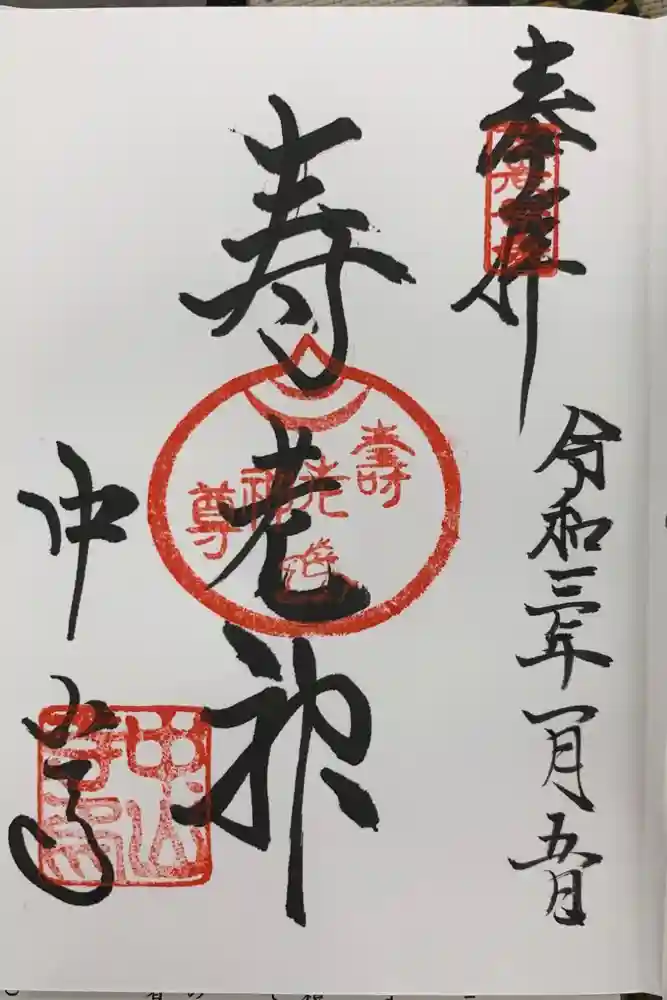 奉拝
令和三年一月五日
寿老神
壽老
神尊
中山寺
中山
寺印